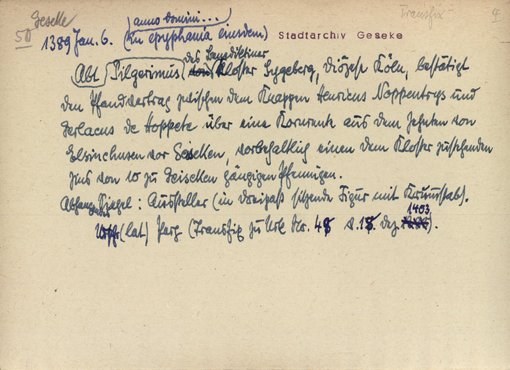 Geseke
50
(anno domini...)
Transfix-
1389 Jan. 6. (in epyphania eiusdem) Stadtarchiv Geseke
des Benediktiner
Abt (Pilgerimus) Kloster Sygeberg, Diözese Köln, bestätigt
den Pfandvertrag zwischen dem Knappen Henricus Noppentrys und
Gerlacus de Hoppete über eine Kornrente aus dem Zehnten von
Elsinchusen vor Geseken, vorbehaltlich einen dem Kloster zustehenden
Zins von 10 zu Geseken gängigen Pfennigen.
Siegel: Aussteller (in Dreipass sitzende Figur mit Krummstab).
1403
(lat) Perg (Transfix zu Urk Nr. 48 v. 18. Dez ).